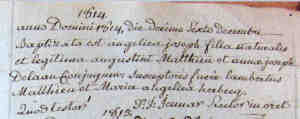 1614
anno Domini 1614, Die decima sexta decembris
Baptizata est angelica joseph filia naturalis
et legitima augustini Matthieu et annæ joseph
Delaau Conjugum, susceptores fuere lambertus
Matthieu et Maria angelica
quod testor